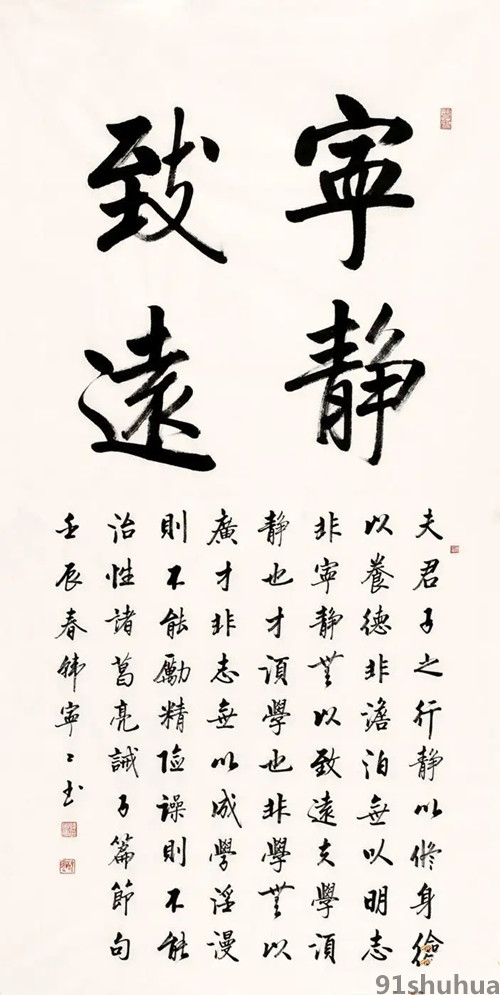 寧靜
致遠
夫君子之行静以修身儉
以養德非澹泊無以明志
非寧静無以致遠夫學須
静也才須學也非學無以
廣才非志無以成學淫漫
則不能勵精險躁則不能
治性諸葛亮誡子篇節句
壬辰春韩寧〻书
91shuhua